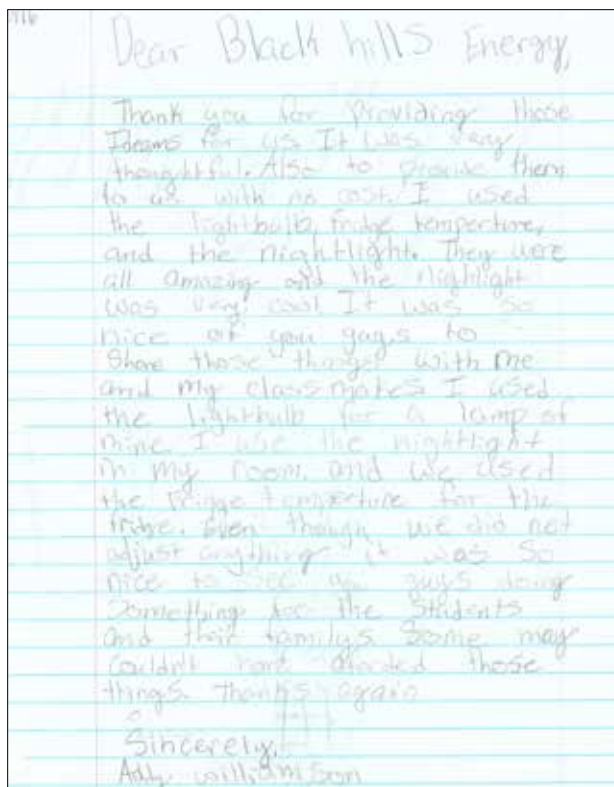 Dear Black hills Energy,
Thank you for providing those
for us. It was very
thoughtful. Also to provide them
to us with no cost. I used
the lightbulb, fridge temperture,
and the nightlight. They were
all amazing and the nightlight
was very cool. It was so
nice of you guys to
Share those things with me
and my classmates. I used
the lightbulb for a lamp of
mine. I use the nightlight
in my room. and we used
the fringe temperture for the
fridge. Even though we did not
adjust anything it was so
nice to see you guys doing
something for the students
and their familys. Some may
couldn't have afforded those
things. Thanks again
Sincerely,
Addy williamson